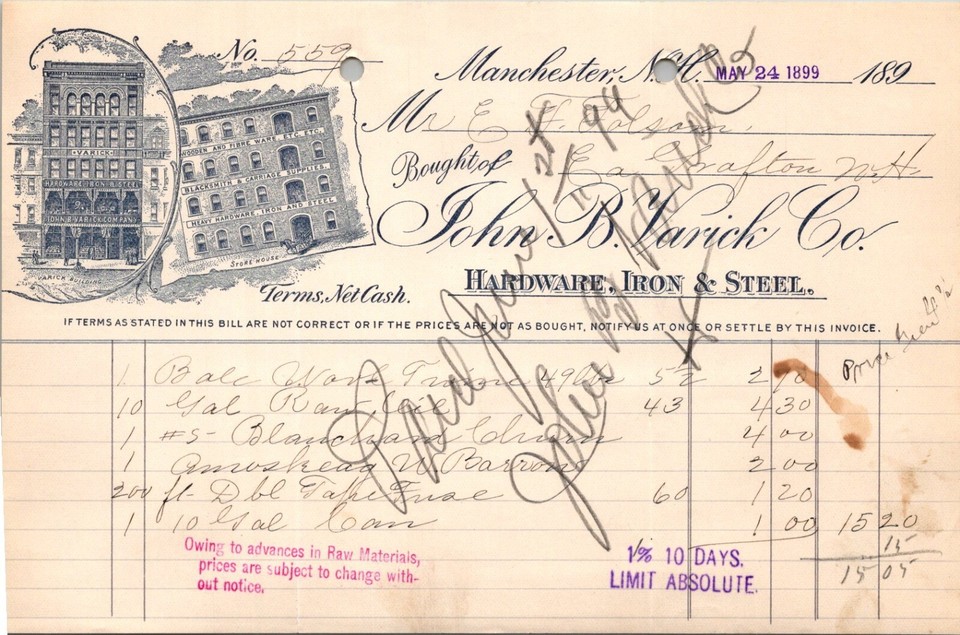 No. 559
Manchester, N.H. MAY 24 1899 189
Mr E. F. Folsom,
Bought of Ea Grafton N.H.
John B. Varick Co.
HARDWARE, IRON & STEEL.
VARICK
HARDWARE IRON & STEEL
JOHN B. VARICK COMPANY
VARICK BUILDING
WOODEN AND FIBRE WARE, ETC. ETC.
BLACKSMITH & CARRIAGE SUPPLIES.
HEAVY HARDWARE, IRON AND STEEL
STORE HOUSE
Terms, Net Cash.
IF TERMS AS STATED IN THIS BILL ARE NOT CORRECT OR IF THE PRICES ARE NOT AS BOUGHT, NOTIFY US AT ONCE OR SETTLE BY THIS INVOICE.
1 Bale 52 2
10 Gal Raw 43 4 30
1 #5 Blanchard Churn 4 00
1 Amoskeag W. Barrow 2 00
200 ft. Dbl Tape Fuse 60 1 20
1 10 Gal Can 1 00 15 20
15
15 05
Paid June 1st 99
John B Varick Co
Owing to advances in Raw Materials,
prices are subject to change with-
out notice.
1% 10 DAYS.
LIMIT ABSOLUTE.